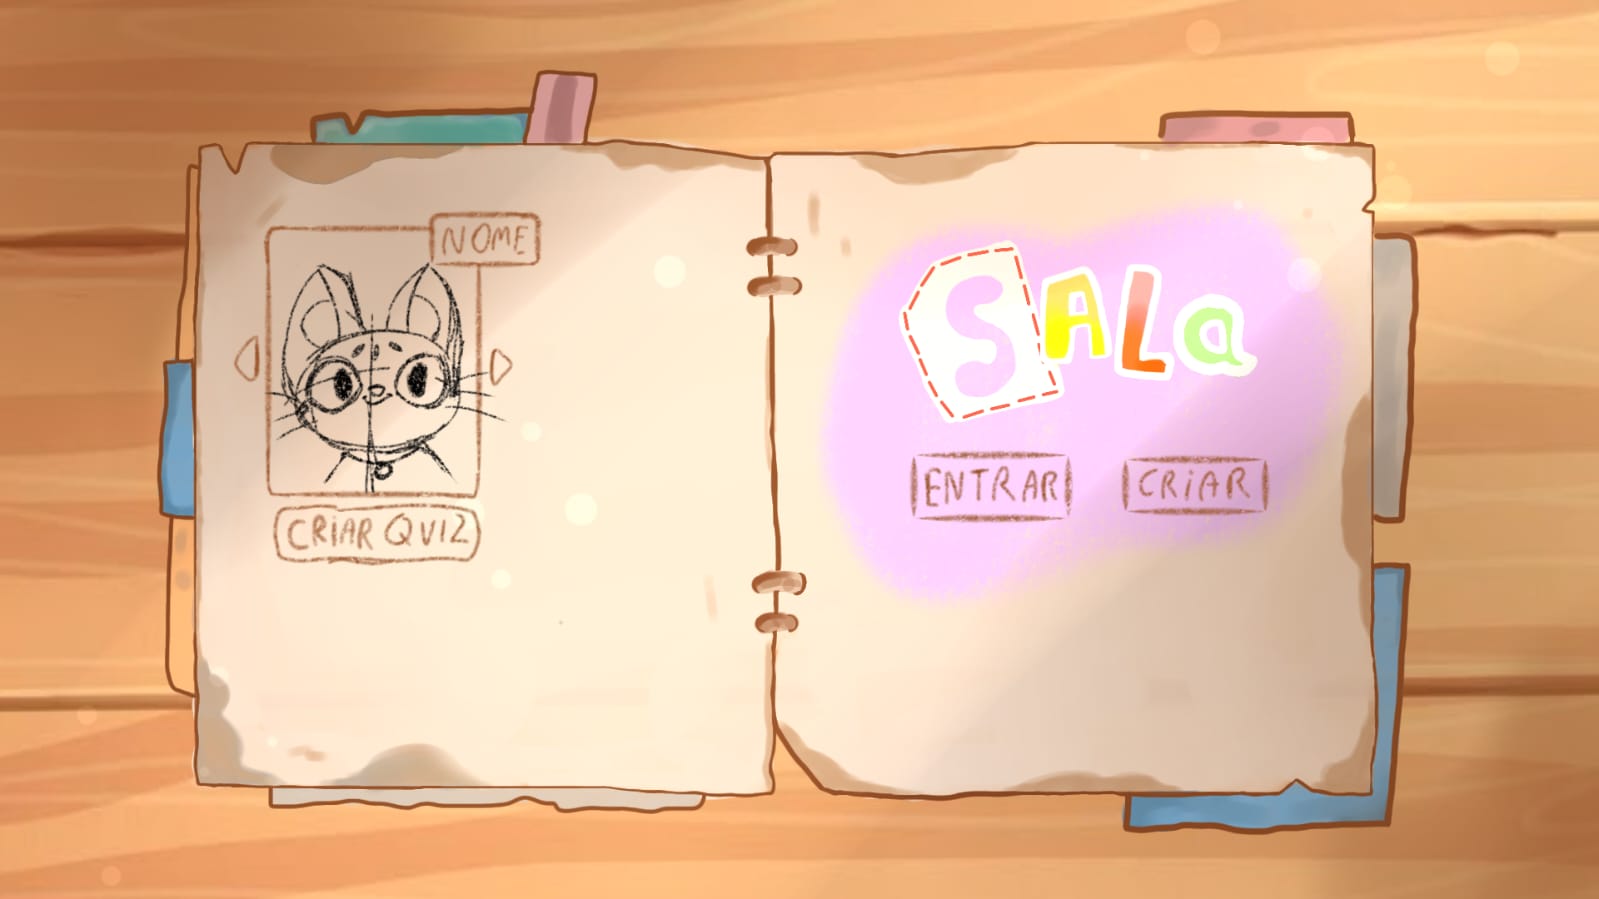 NOME
CRiAR QUIZ
SALa
ENTRAR
CRiAR